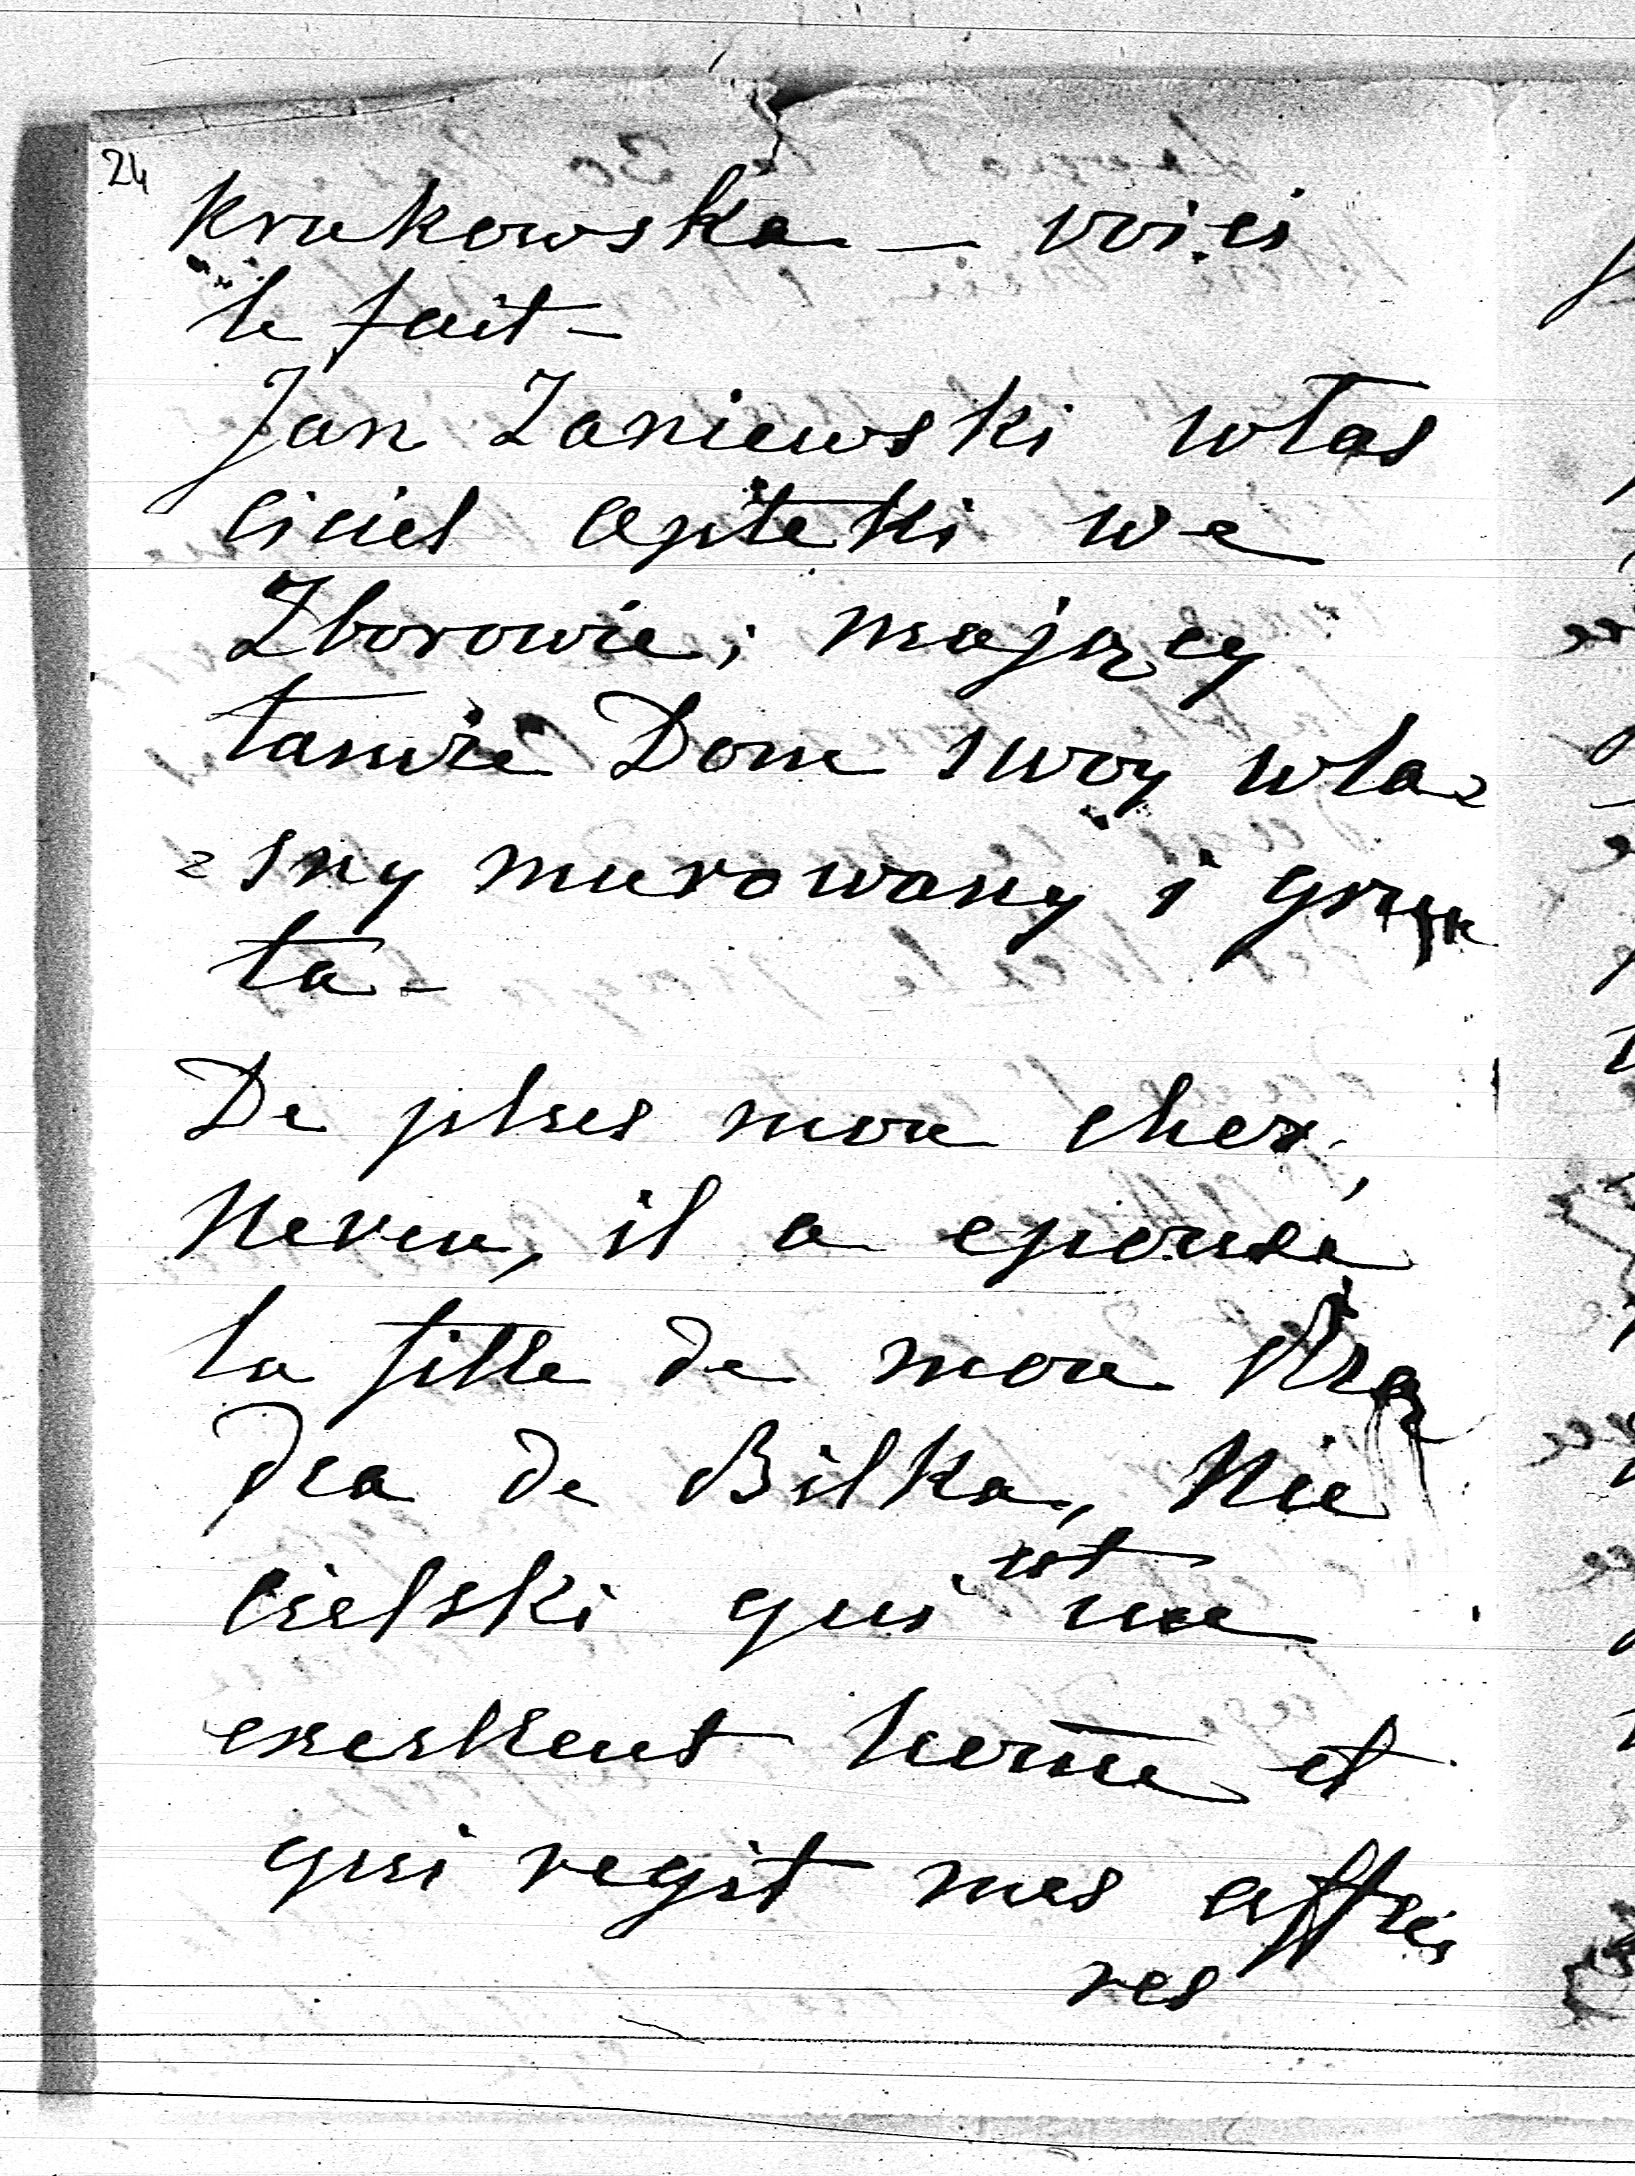 24
Krakowska — voici
le fait —
Jan Zaniewski włas
ciciel apteki we
Zborowie; mający
tamże Dom swoy wła=
=sny murowany i grun
ta —
De plus mon cher,
Neveu, il a epousé
la fille de mon Rzą
dca de Bilka, Nie
cielski qui est un
excellent home et
qui regit mes affai
res